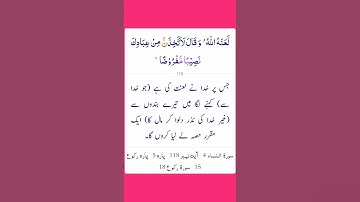 لَّعَنَهُ اللّٰهُ ۘ وَ قَالَ لَاَتَّخِذَنَّ مِنْ عِبَادِكَ
نَصِيْبًا مَّفْرُوْضًا ۙ
118
جس پر خدا نے لعنت کی ہے (جو خدا
سے) کہنے لگا میں تیرے بندوں سے
(غیر خدا کی نذر دلوا کر مال کا) ایک
مقرر حصہ لے لیا کروں گا۔
سورۃ النساء 4 آیت نمبر 118 پارہ 5 پارہ رکوع
15 سورۃ رکوع 18